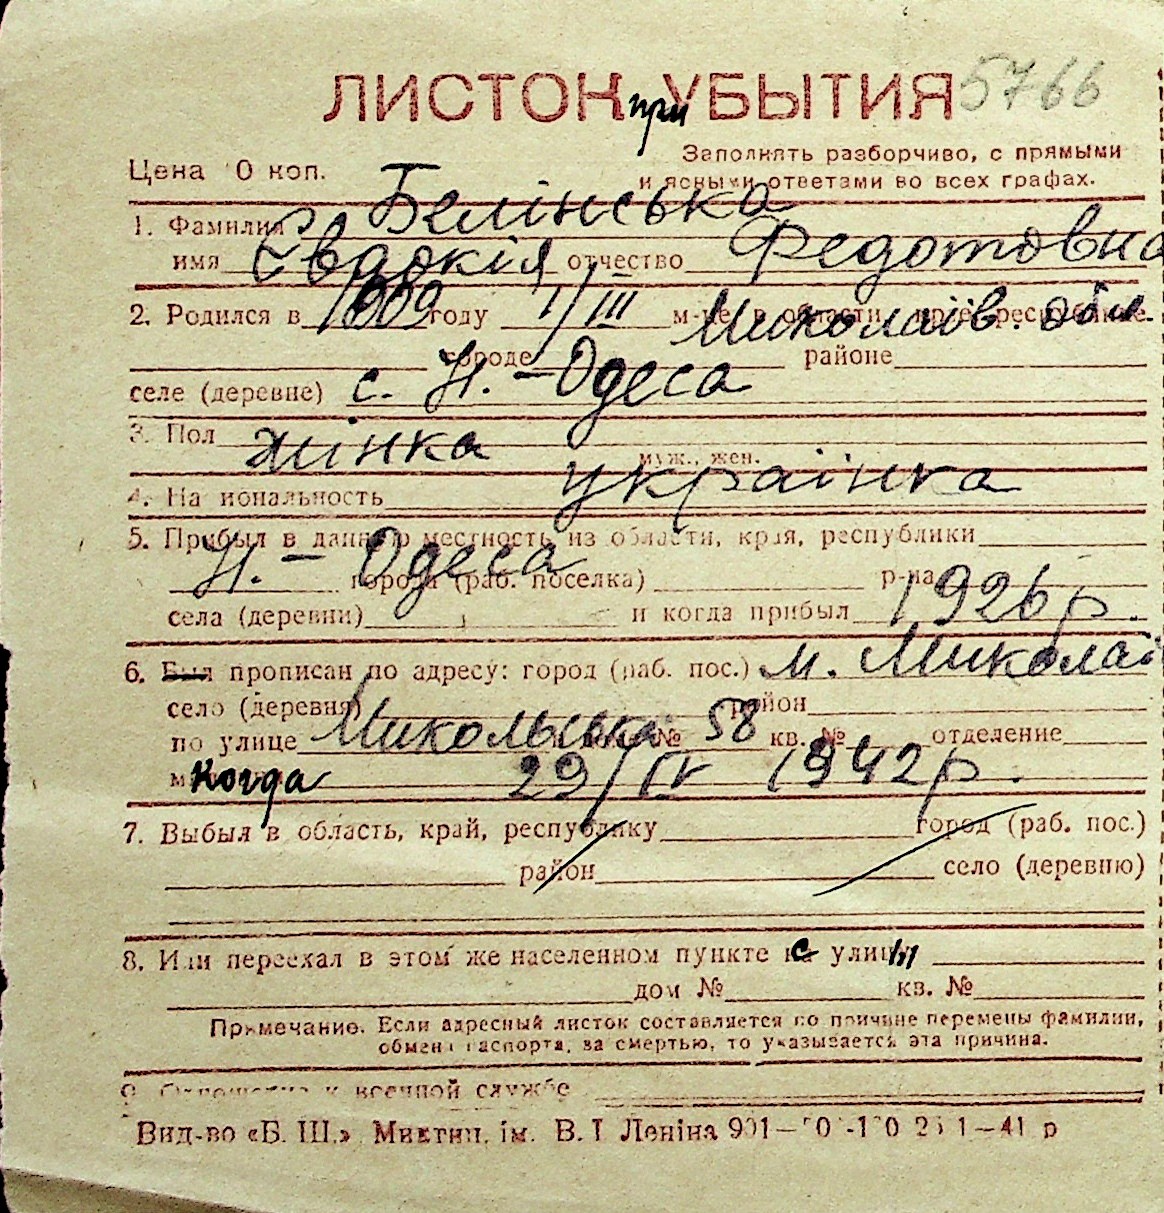 ЛИСТОК при УБЫТИЯ 5766
Цена 0 коп.
Заполнять разборчиво, с прямыми
и ясными ответами во всех графах.
1. Фамилия Белінська
имя Євдокія отчество Федотовна
2. Родился в году 1/III м-це в области, республике Миколаїв. обл.
городе районе
селе (деревне) с. Н.-Одеса
3. Пол жінка
муж., жен.
4. Национальность українка
5. Прибыл в данную местность из области, края, республики
Н.-Одеса города (раб. поселка) р-на
села (деревни) и когда прибыл 1926 р.
6. Был прописан по адресу: город (раб. пос.) м. Миколаї
село (деревня) район
по улице Микольська № 58 кв. № отделение
когда 29/IV 1942 р.
7. Выбыл в область, край, республику город (раб. пос.)
район село (деревню)
8. Или переехал в этом же населенном пункте с улицы
дом № кв. №
Примечание. Если адресный листок составляется по причине перемены фамилии,
обмена паспорта, за смертью, то указывается эта причина.
9. Отношение к военной службе
Вид-во «Б. Ш.» Миктип. ім. В. І. Леніна